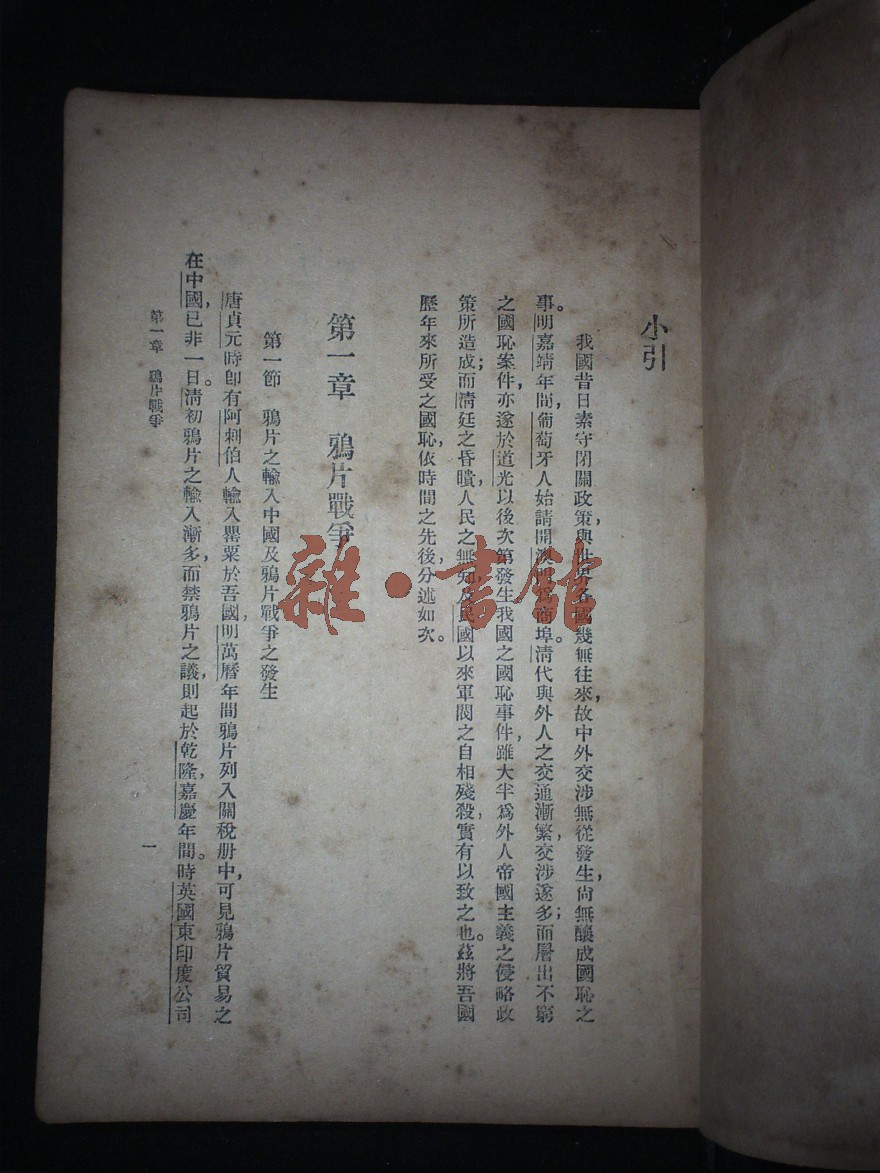 小引
我國昔日素守閉關政策，與世界各國幾無往來，故中外交涉無從發生，尚無釀成國恥之
事。明嘉靖年間，葡萄牙人始請開澳門爲商埠。清代與外人之交通漸繁，交涉遂多；而層出不窮
之國恥案件，亦遂於道光以後次第發生。我國之國恥事件，雖大半爲外人帝國主義之侵略政
策所造成；而清廷之昏瞶，人民之無知，及民國以來軍閥之自相殘殺，實有以致之也。茲將吾國
歷年來所受之國恥，依時間之先後分述如次。
第一章　鴉片戰爭
第一節　鴉片之輸入中國及鴉片戰爭之發生
唐貞元時卽有阿剌伯人輸入罌粟於吾國，明萬曆年間鴉片列入關稅册中，可見鴉片貿易之
在中國，已非一日。清初鴉片之輸入漸多，而禁鴉片之議，則起於乾隆，嘉慶年間。時英國東印度公司
第一章　鴉片戰爭
一
雜·書館